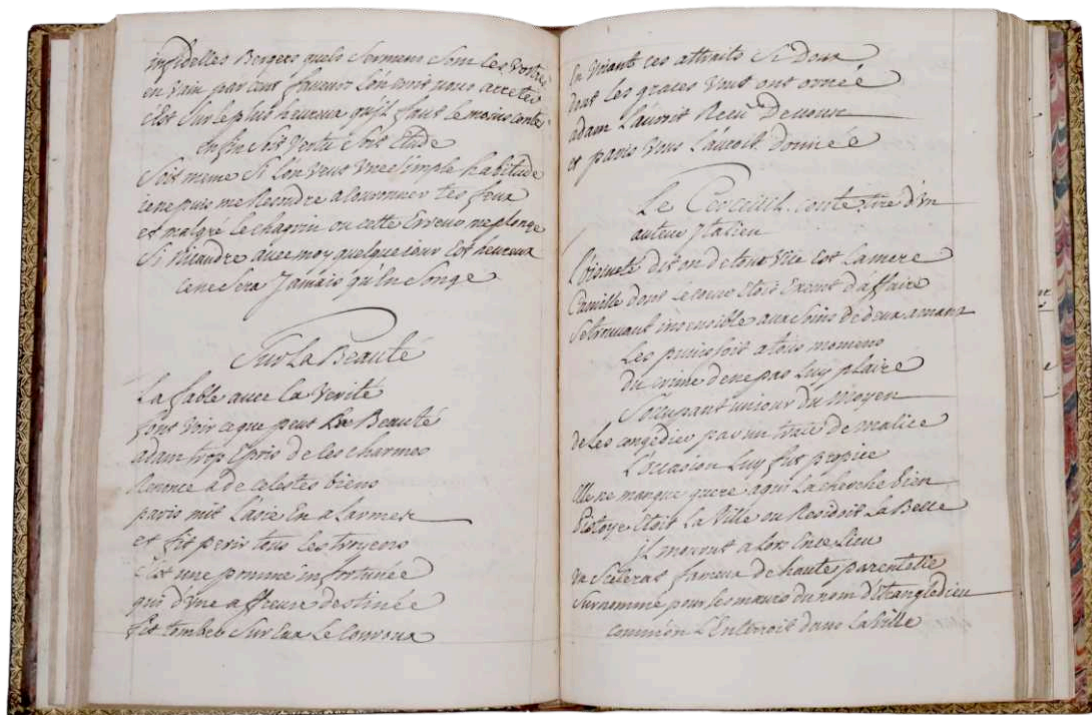 infidelles Bergers quels Sermens Sont les Vostres
en Vain par tout faveurs l'on croit vous arreter
c'est Sur le plus heureux qu'il faut le moins conter
Enfin Soit Vertu Soit Etude
Soit mesme Si l'on Veut Une Simple habitude
Je ne puis me Resoudre a Couronner tes feux
et malgré le chagrin ou cette Erreur me plonge
Si avec moy quelque jour Est heureux
ce ne Sera Jamais qu'En Songe
Sur La Beauté
La fable avec La Verité
font Voir ce que peut La Beauté
adam trop Epris de Ses charmes
Renonce à de celestes biens
paris mit L'asie En alarmes
et fit perir tous Les troyens
C'est une pomme infortunée
qui d'Une affreuse destinée
fit tomber Sur Eux Le Couroux
En Voiant ces attraits Si Doux
dont Les graces Vous ont ornée
adam L'auroit Reçu De vous
et paris Vous L'auroit Donnée
Le Cercueil. conte tiré d'Un
auteur Italien
L'oisiveté dit on de tout Vice Est La mere
Camille dont Le coeur Etoit Exent d'affaire
Se trouvant insensible aux Soins de deux amans
Les punissoit a tous momens
du crime de ne pas Luy plaire
S'occupant un jour Du Moyen
de Les congedier par un trait de malice
L'occasion Luy fut propice
Elle ne manque guere a qui La cherche bien
Pistoye Etoit La Ville ou Residoit La Belle
jl mourut alors En ce Lieu
Un Scelerat fameux de haute parentelle
Surnommé pour Ses moeurs du nom d'Etrangledieu
comme on L'Enterroit dans La Ville